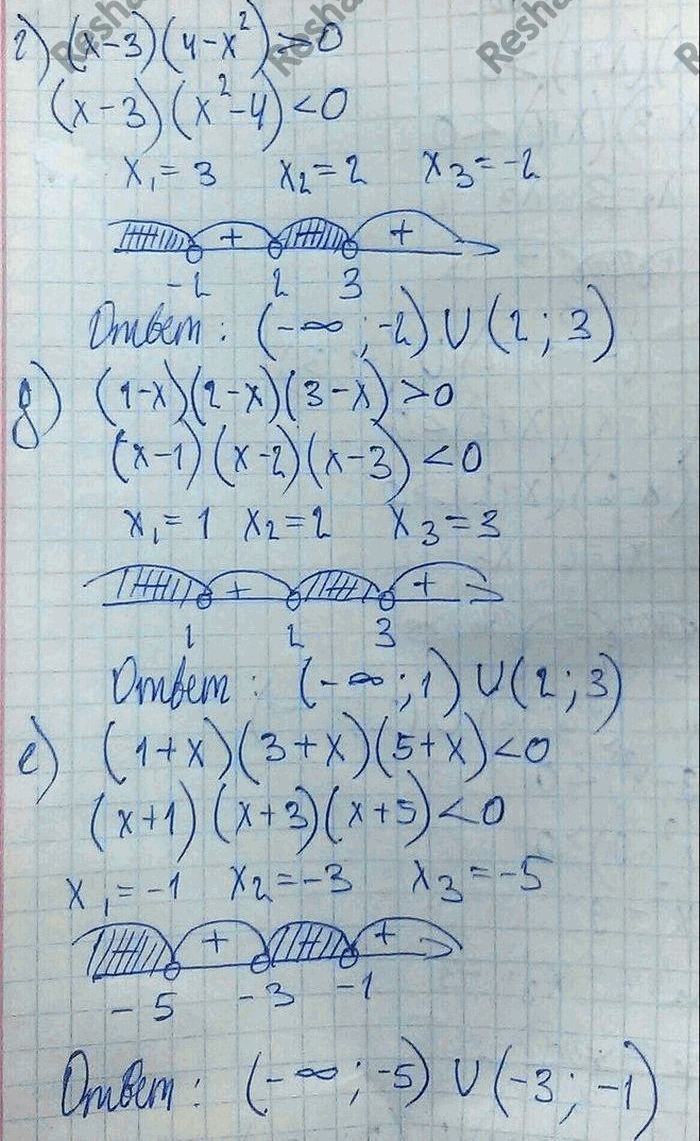 г) (x-3)(4-x²)>0
(x-3)(x²-4)<0
x₁=3 x₂=2 x₃=-2
+ +
-2 2 3
Ответ: (-∞;-2)∪(2;3)
д) (1-x)(2-x)(3-x)>0
(x-1)(x-2)(x-3)<0
x₁=1 x₂=2 x₃=3
+ +
1 2 3
Ответ: (-∞;1)∪(2;3)
е) (1+x)(3+x)(5+x)<0
(x+1)(x+3)(x+5)<0
x₁=-1 x₂=-3 x₃=-5
+ +
-5 -3 -1
Ответ: (-∞;-5)∪(-3;-1)